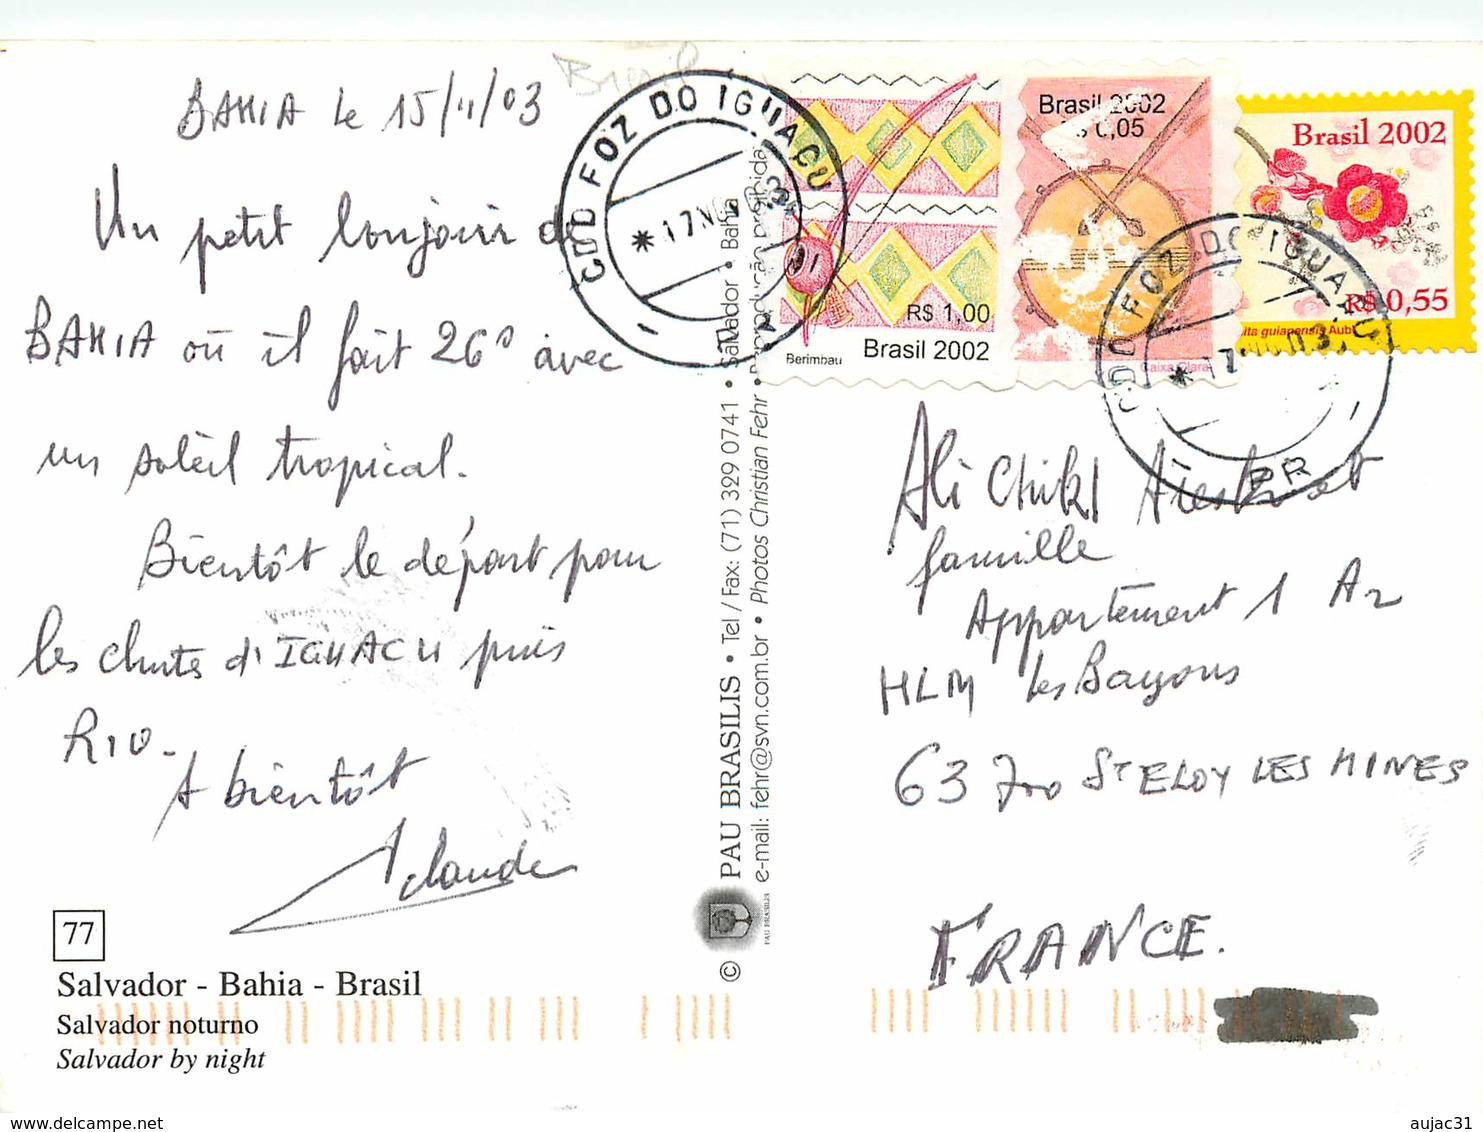 Bresil
BAHIA le 15/11/03
Un petit bonjour de
BAHIA où il fait 26° avec
un soleil tropical.
Bientôt le départ pour
les chutes d'IGUACU puis
RIO-
A bientôt
Claude
77
Salvador - Bahia - Brasil
Salvador noturno
Salvador by night
© PAU BRASILIS • Tel / Fax: (71) 329 0741 • Salvador • Bahia
e-mail: fehr@svn.com.br • Photos Christian Fehr • Reprodução proibida
PAU BRASILIS
CDD FOZ DO IGUAÇU
*17 NOV
R$ 1,00
Berimbau
Brasil 2002
Brasil 2002
0,05
Caixa Clara
Brasil 2002
R$ 0,55
guianensis Aubl
CDD FOZ DO IGUAÇU
*17
03
PR
Ali et
famille
Appartement 1 A2
HLM les Bayons
63700 ST ELOY LES MINES
FRANCE.
https://www.delcampe.net
aujac31